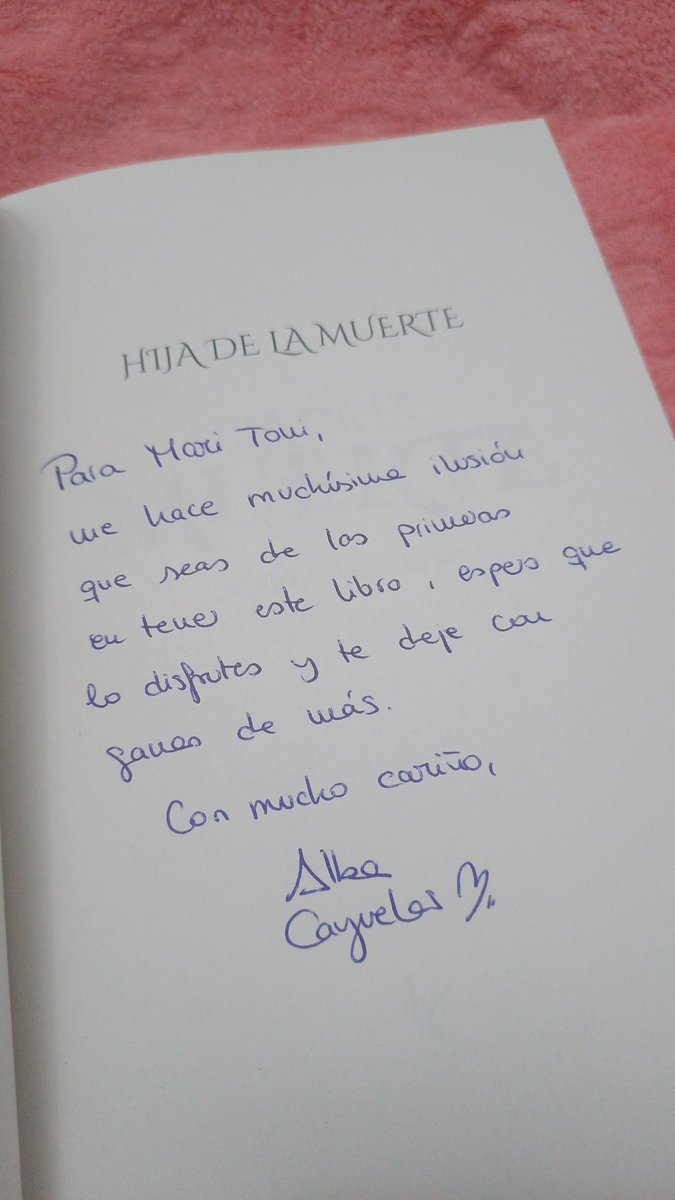 HIJA DE LA MUERTE
Para Mari Toni,
me hace muchísima ilusión
que seas de las primeras
en tener este libro, espero que
lo disfrutes y te deje con
ganas de más.
Con mucho cariño,
Alba
Cayuelas